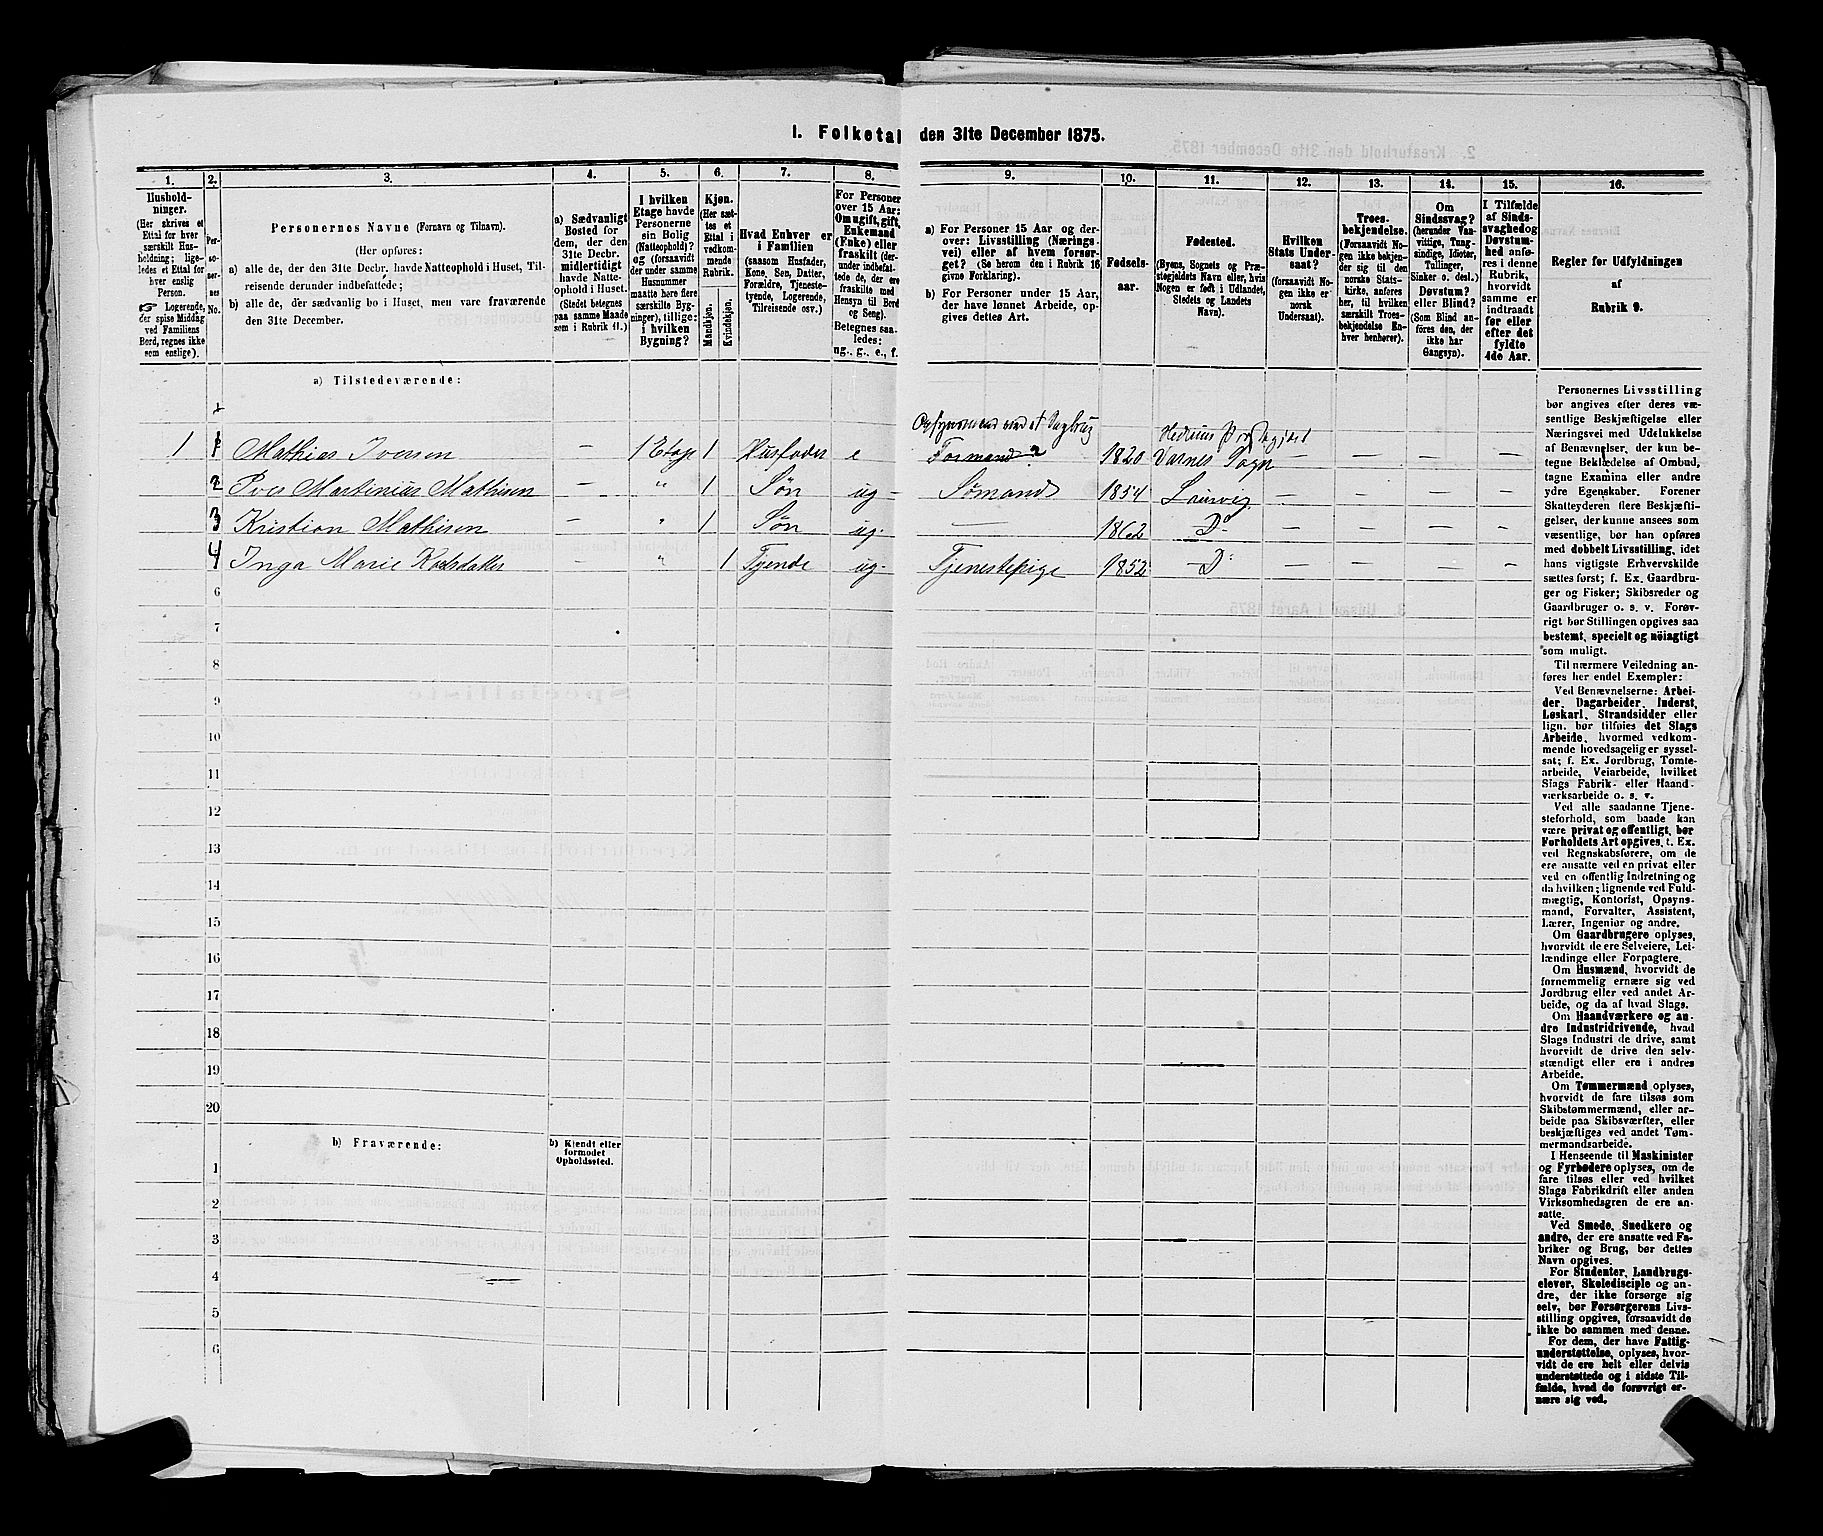 I. Folketal den 31te December 1875.
1. 2. 3. 4. 5. 6. 7. 8. 9. 10. 11. 12. 13. 14. 15. 16.
Hushold-
ninger.
(Her skrives et
Ettal for hver
særskilt Hus-
holdning; lige-
ledes et Ettal for
hver enslig
Person.
☞ Logerende,
der spise Middag
ved Familiens
Bord, regnes ikke
som enslige).
Per-
so-
ner-
nes
No.
Personernes Navne (Fornavn og Tilnavn).
(Her opføres:
a) alle de, der den 31te Decbr. havde Natteophold i Huset, Til-
reisende derunder indbefattede;
b) alle de, der sædvanlig bo i Huset, men vare fraværende
den 31te December.
a) Sædvanligt
Bosted for
dem, der den
31te Decbr.
midlertidigt
havde Natte-
ophold i Huset.
(Stedet betegnes
paa samme Maade
som i Rubrik 11.)
I hvilken
Etage havde
Personerne
sin Bolig
(Natteophold)?
og (forsaavidt
der under samme
Husnummer
maatte høre flere
særskilte Byg-
ninger), tillige:
i hvilken
Bygning?
Kjøn.
(Her sæt-
tes et
Ettal i
vedkom-
mende
Rubrik.
Mandkjøn.
Kvindekjøn.
Hvad Enhver er
i Familien
(saasom Husfader,
Kone, Søn, Datter,
Forældre, Tjeneste-
tyende, Logerende,
Tilreisende osv.)
For Personer
over 15 Aar:
Om ugift, gift,
Enkemand
(Enke) eller
fraskilt (der-
under indbefat-
tede de, der ere
fraskilte med
Hensyn til Bord
og Seng).
Betegnes saa-
ledes:
ug., g., e., f.
a) For Personer 15 Aar og der-
over: Livsstilling (Nærings-
vei) eller af hvem forsør-
get? (Se herom den i Rubrik 16
givne Forklaring).
b) For Personer under 15 Aar,
der have lønnet Arbeide, op-
gives dettes Art.
Fødsels-
aar.
Fødested.
(Byens, Sognets og Præ-
stegjeldets Navn eller, hvis
Nogen er født i Udlandet,
Stedets og Landets
Navn).
Hvilken
Stats Under-
saat?
(forsaavidt No-
gen ikke er
norsk
Undersaat).
Troes-
bekjendelse.
(Forsaavidt No-
gen ikke bekjen-
der sig til den
norske Stats-
kirke, anføres
her, til hvilken
særskilt Troes-
bekjendelse En-
hver henhører).
Om
Sindssvag?
(herunder Van-
vittige, Tung-
sindige, Idioter,
Tullinger,
Sinker o. desl.)
Døvstum?
eller Blind?
(Som Blind an-
føres den, der
ikke har
Gangsyn).
I Tilfælde
af Sinds-
svaghed og
Døvstum-
hed anfø-
res i denne
Rubrik,
hvorvidt
samme er
indtraadt
før eller
efter det
fyldte
4de Aar.
Regler for Udfyldningen
af
Rubrik 9.
a) Tilstedeværende:
Opsynsmand ved et Sagbrug
Hedrums Præstegjeld
1 1 Mathias Iversen — 1 Etage 1 Husfader e Formand 1820 Varnes Sogn — — — —
2 Iver Martinius Mathisen — " 1 Søn ug — Sømand 1854 Laurvig — — — —
3 Kristian Mathisen — " 1 Søn ug. — 1862 Do — — — —
4 Inga Marie — " 1 Tjende ug. Tjenestepige 1852 — D — — — —
6
7
8
9
10
11
12
13
14
15
16
17
18
19
20
b) Fraværende:
b) Kjendt eller
formodet
Opholdssted.
1
2
3
4
5
6
Personernes Livsstilling
bør angives efter deres væ-
sentlige Beskjæftigelse eller
Næringsvei med Udelukkelse
af Benævnelser, der kun be-
tegne Beklædelse af Ombud,
tagne Examina eller andre
ydre Egenskaber. Forener
Skatteyderen flere Beskjæfti-
gelser, der kunne ansees som
væsentlige, bør han opføres
med dobbelt Livsstilling, idet
hans vigtigste Erhvervskilde
sættes først; f. Ex. Gaardbru-
ger og Fisker; Skibsreder og
Gaardbruger o. s. v. Forøv-
rigt bør Stillingen opgives saa
bestemt, specielt og nøiagtigt
som muligt.
Til nærmere Veiledning an-
føres her endel Exempler:
Ved Benævnelserne: Arbei-
der, Dagarbeider, Inderst,
Løskarl, Strandsidder eller
lign. bør tilføies det Slags
Arbeide, hvormed vedkom-
mende hovedsagelig er syssel-
sat; f. Ex. Jordbrug, Tømte-
arbeide, Veiarbeide, hvilket
Slags Fabrik- eller Haand-
værksarbeide o. s. v.
Ved alle saadanne Tjene-
steforhold, som baade kan
være privat og offentligt, bør
Forholdets Art opgives, t. Ex.
ved Regnskabsførere, om de
ere ansatte ved en privat eller
ved en offentlig Indretning og
da hvilken; lignende ved Fuld-
mægtig, Kontorist, Opsyns-
mand, Forvalter, Assistent,
Lærer, Ingeniør og andre.
Om Gaardbrugere oplyses,
hvorvidt de ere Selveiere, Lei-
lændinge eller Forpagtere.
Om Husmænd, hvorvidt de
fornemmelig ernære sig ved
Jordbrug eller ved andet Ar-
beide, og da af hvad Slags.
Om Haandværkere og an-
dre Industridrivende, hvad
Slags Industri de drive, samt
hvorvidt de drive den selv-
stændigt eller ere i andres
Arbeide.
Om Tømmermænd oplyses,
hvorvidt de fare tilsøs som
Skibstømmermænd, eller ar-
beide paa Skibsværfter, eller
beskjæftiges ved andet Tøm-
mermandsarbeide.
I Henseende til Maskinister
og Fyrbødere oplyses, om de
fare tilsøs eller ved hvilket
Slags Fabrikdrift eller anden
Virksomhedsgren de ere an-
satte.
Ved Smede, Snedkere og
andre, der ere ansatte ved Fa-
briker og Brug, bør dettes
Navn opgives.
For Studenter, Landbrugs-
elever, Skoledisciple og an-
dre, der ikke forsørge sig
selv, bør Forsørgerens Livs-
stilling opgives, forsaavidt de
ikke bo sammen med denne.
For dem, der have Fattig-
understøttelse, oplyses, hvor-
vidt de ere helt eller delvis
understøttede og i sidste Til-
fælde, hvad de forøvrigt er-
nære sig ved.